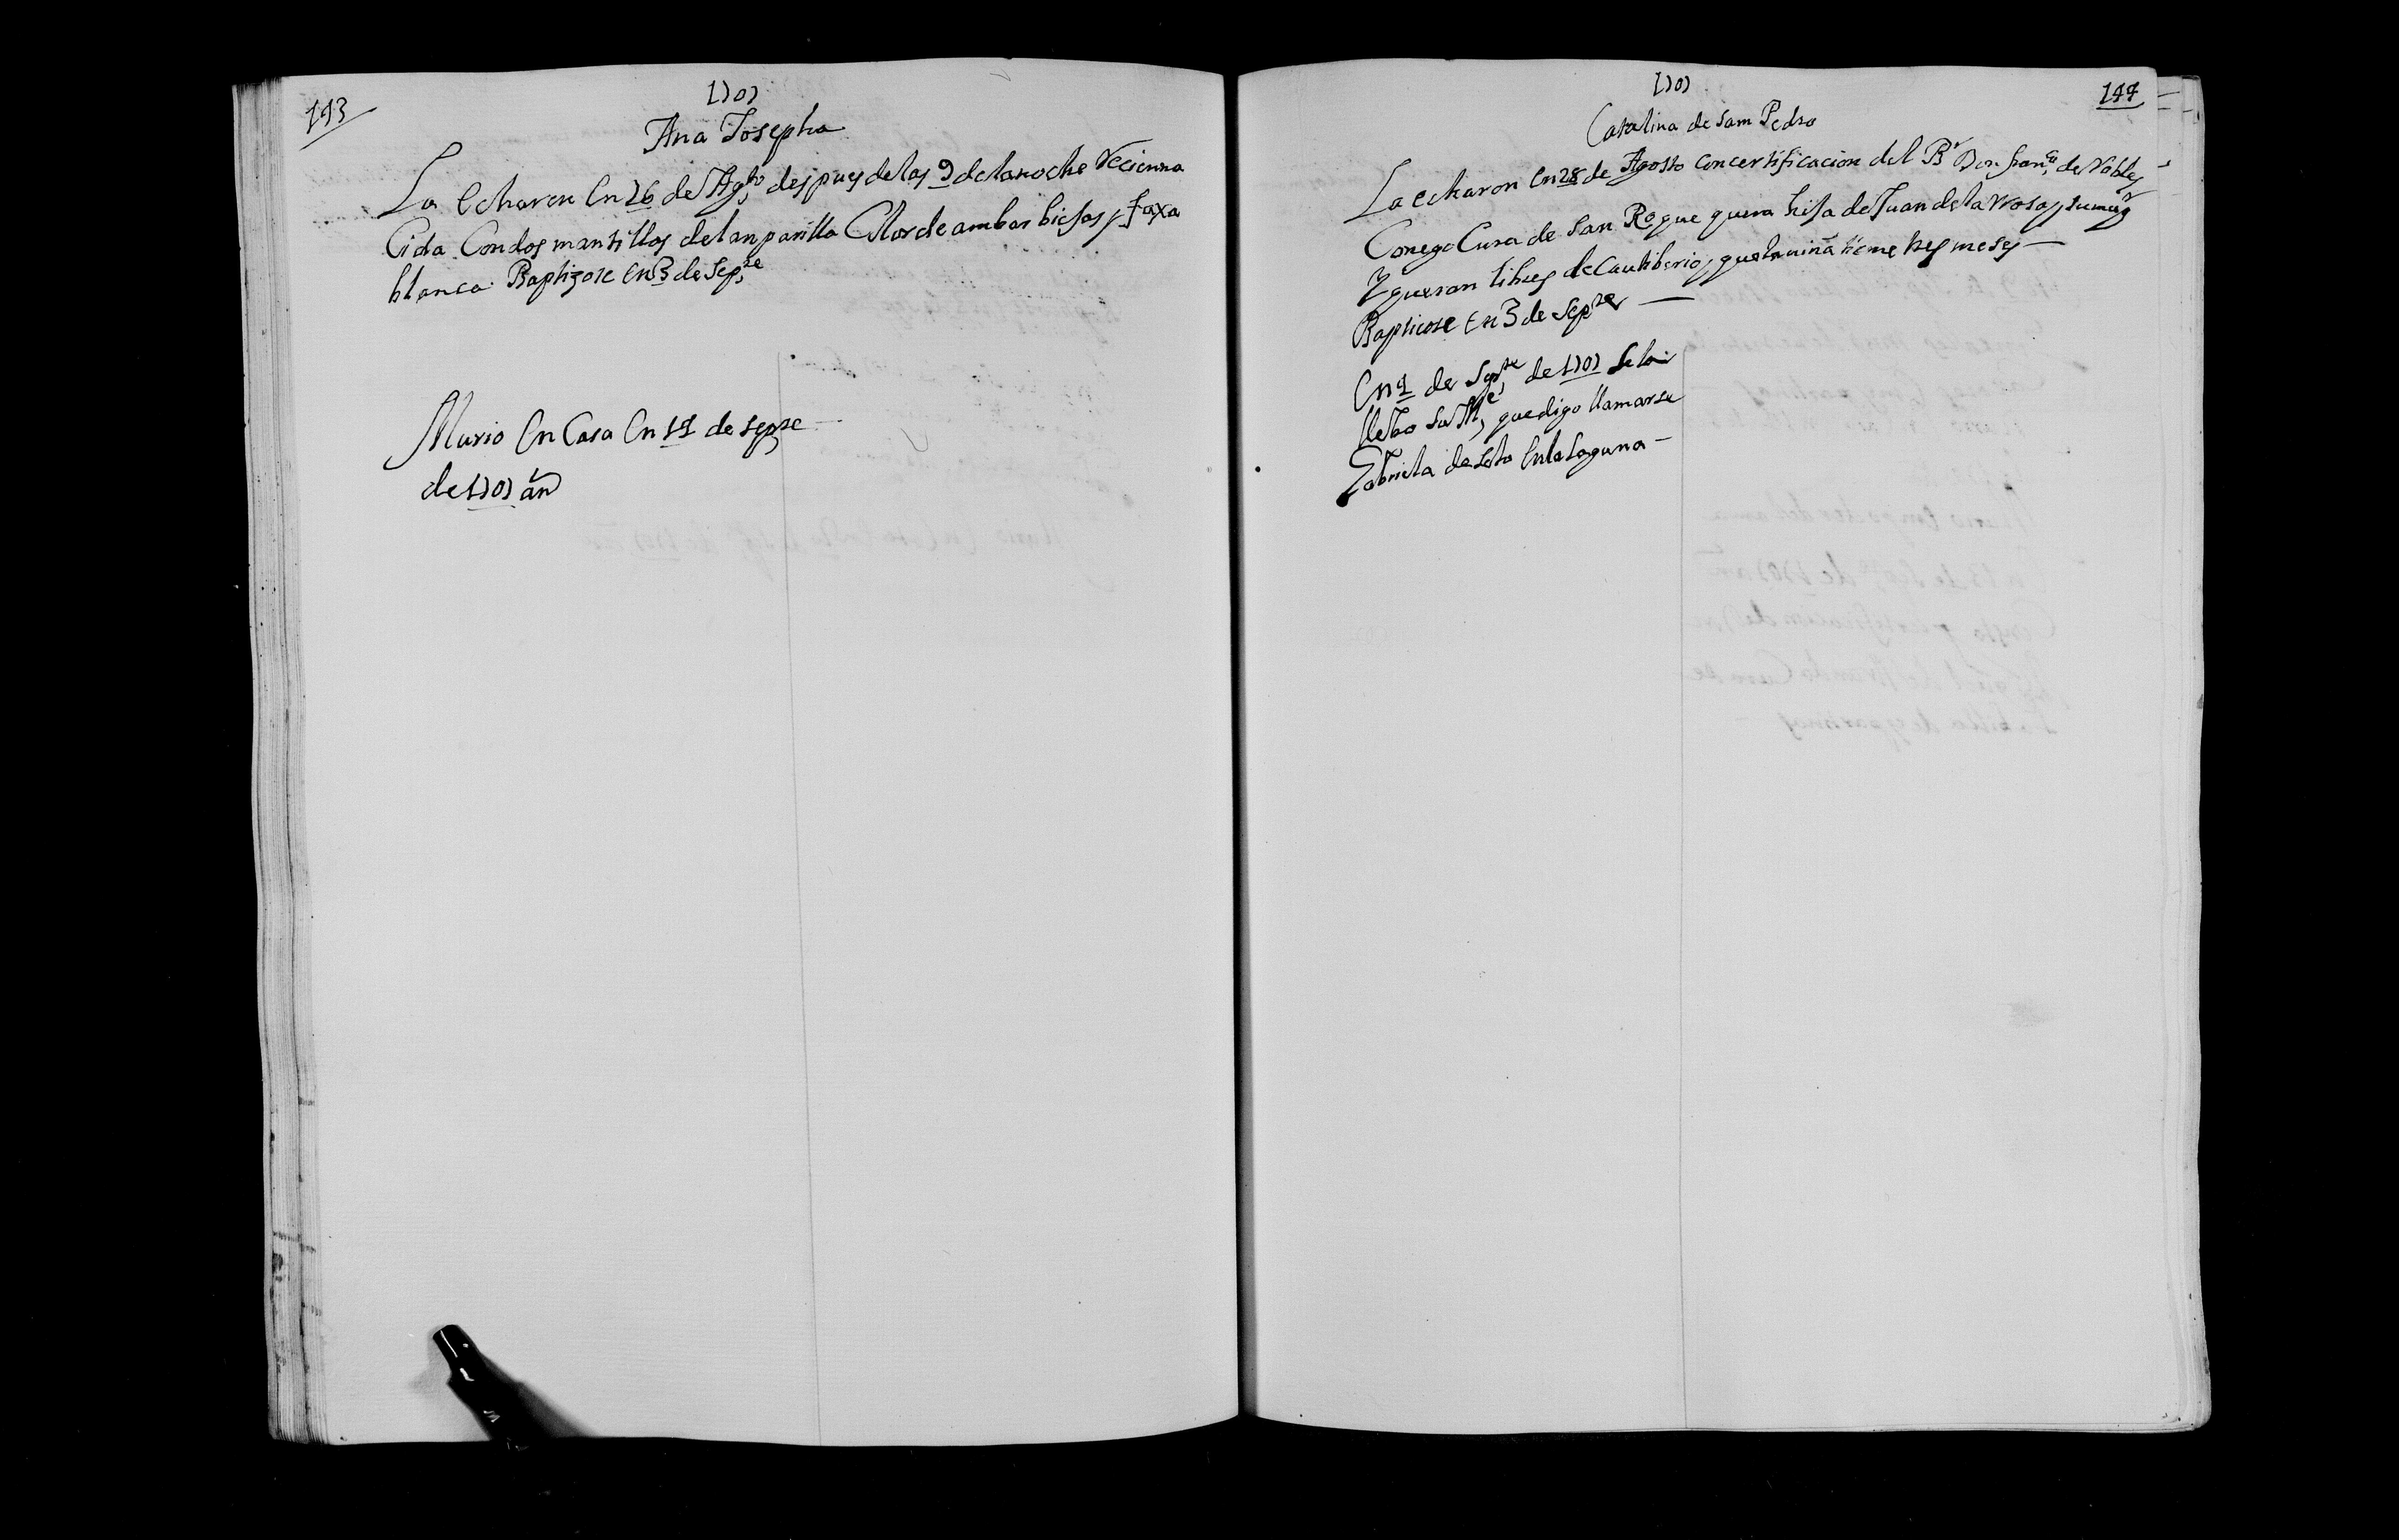 143
1707
Ana Josepha
La echaron En 26 de Agto despues de las 9 de la noche Recienna
Cida Con dos mantillas de lanparilla Color de ambar biejas y faxa
blanca Baptizose En 3 de Sepre
Murio En Casa En 11 de sepre
de 1707 an
144
1707
Catalina de Sam Pedro
La echaron En 28 de Agosto con certificacion del Br Don Franco de Robles
Conego Cura de San Roque quera hija de Juan de la Rosa y su mugr
Y queran libres de Cautiberio y que la niña tieme tres meses
Bapticose En 3 de Sepre
En 9 de Sepre de 1707 Se la
llebo su Me que digo llamarse
Gabriela de Soto En la Laguna